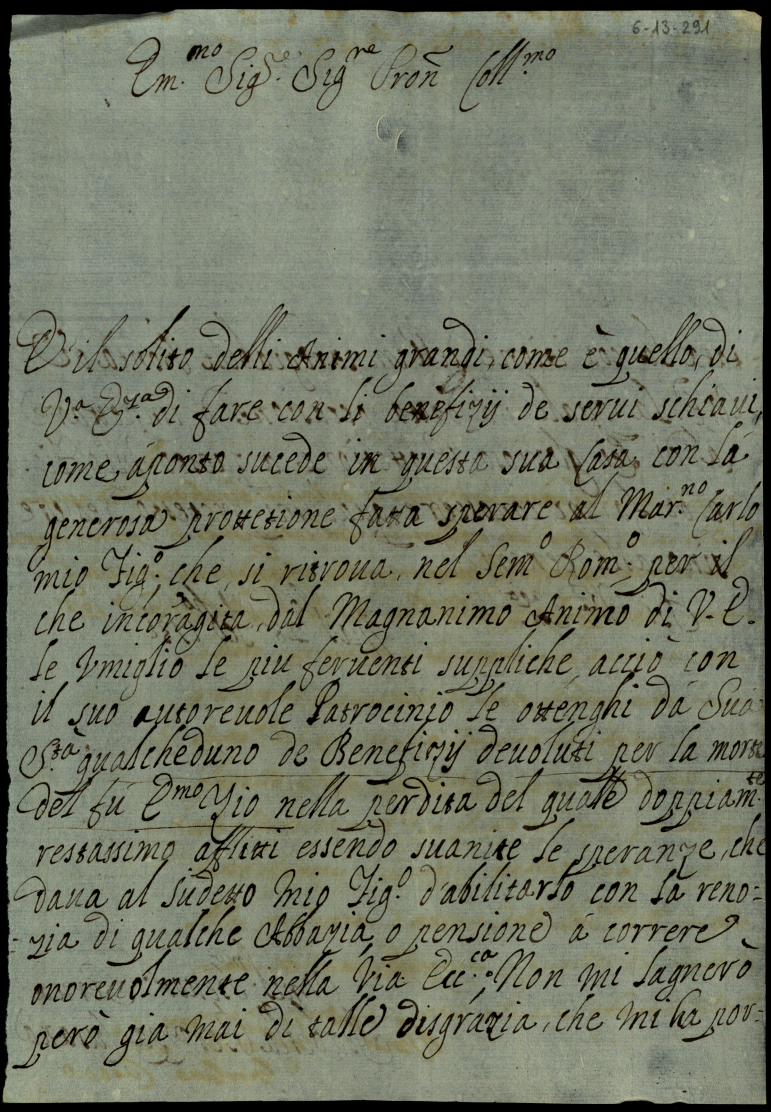 6-13-291
Em.mo Sig.e Sig.re Pron Coll.mo
È il solito delli Animi grandi, come è quello, di
V.a E.za di fare con li benefizij de servi schiavi,
come áponto sucede in questa sua Casa con la
generosa prottetione fatta sperare al Mar.no Carlo
mio Fig.o, che si ritroua nel Sem.o Rom.o, per il
che incoragita dal Magnanimo Animo di V. E.
le Vmiglio le piu feruenti suppliche, acciò con
il suo autoreuole Patrocinio le ottenghi da Sua
S.tà qualcheduno de Benefizij deuoluti per la morte
del fù E.mo Zio nella perdita del quale doppiam.te
restassimo afflitti essendo suanite le speranze, che
daua al sudetto mio Fig.o d'abilitarlo con la reno=
=zia di qualche Abbazia, o pensione á correre
onoreuolmente nella Via Ecc.ca; Non mi lagnerò
però gia mai di talle disgrazia, che mi ha por=